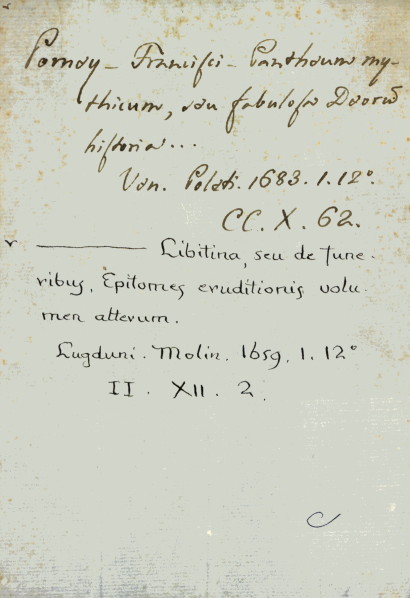 Pomey - Francisci - Pantheum my-
thicum, seu fabulosa Deorū
historia...
Ven. Poleti. 1683. 1. 12°.
CC. X. 62.
v ———— Libitina, seu de fune-
ribus. Epitomes eruditionis volu-
men alterum.
Lugduni. Molin. 1659. 1. 12°
II. XII. 2.